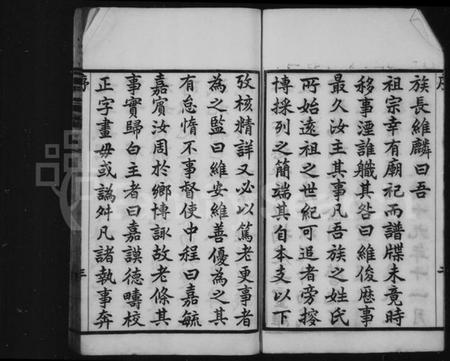 族長維麟曰吾
祖宗幸有廟祀而譜牒未竟時
移事湮誰軄其咎曰維俊歷事
最久汝主其事凡吾族之姓氏
所始遠祖之世紀可追者旁搜
博採列之簡端其自本支以下
攷核精詳又必以篤老更事者
為之監曰維安維善優為之其
有怠惰不事督使中程曰嘉毓
嘉賓汝周於鄉博諏故老條其
事實歸白主者曰嘉謨德疇校
正字畫毋或譌舛凡諸執事奔
序
三